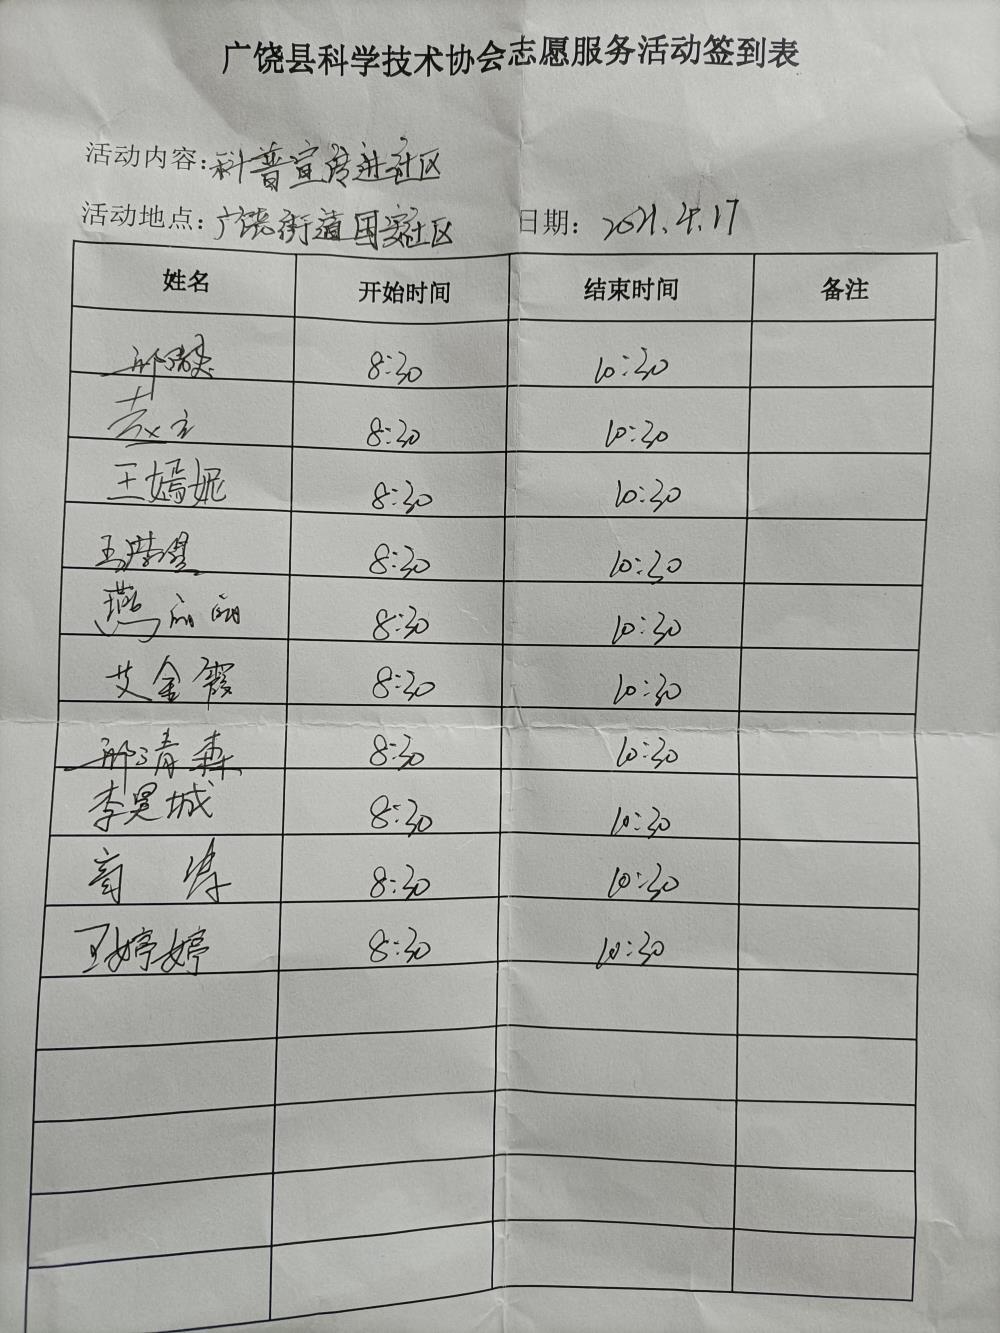 广饶县科学技术协会志愿服务活动签到表
活动内容:科普宣传进社区
活动地点:广饶街道国安社区 日期: 2021.4.17
姓名 开始时间 结束时间 备注
8:30 10:30
8:30 10:30
王嫣妮 8:30 10:30
王 8:30 10:30
燕丽丽 8:30 10:30
艾金霞 8:30 10:30
邢清森 8:30 10:30
李昊城 8:30 10:30
8:30 10:30
王婷婷 8:30 10:30